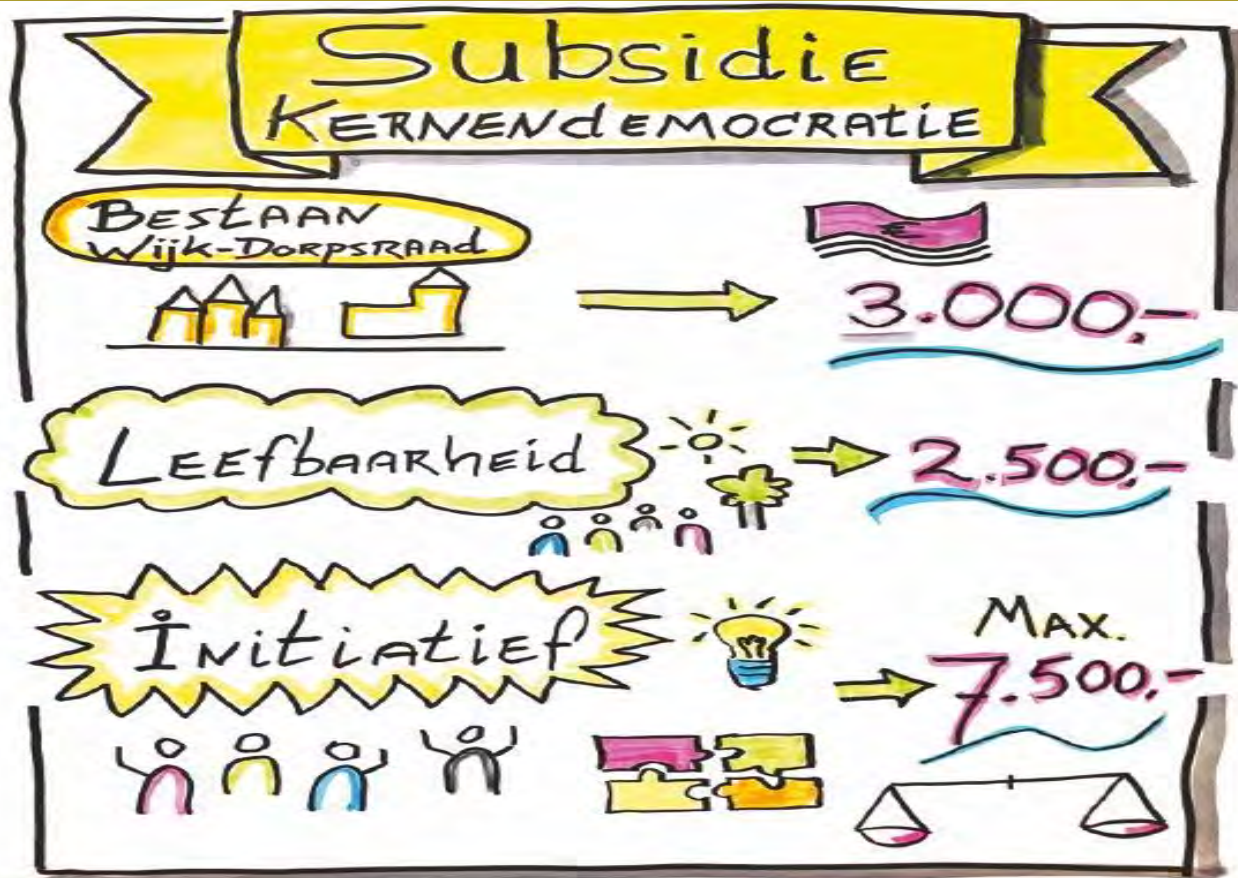 Subsidie
KERNENdEMOCRATIE
BEStAAN
Wijk-DORPSRAAD
€
3.000,-
LEEfbAARhEid
2.500,-
INitiAtiEf
MAX.
7.500,-